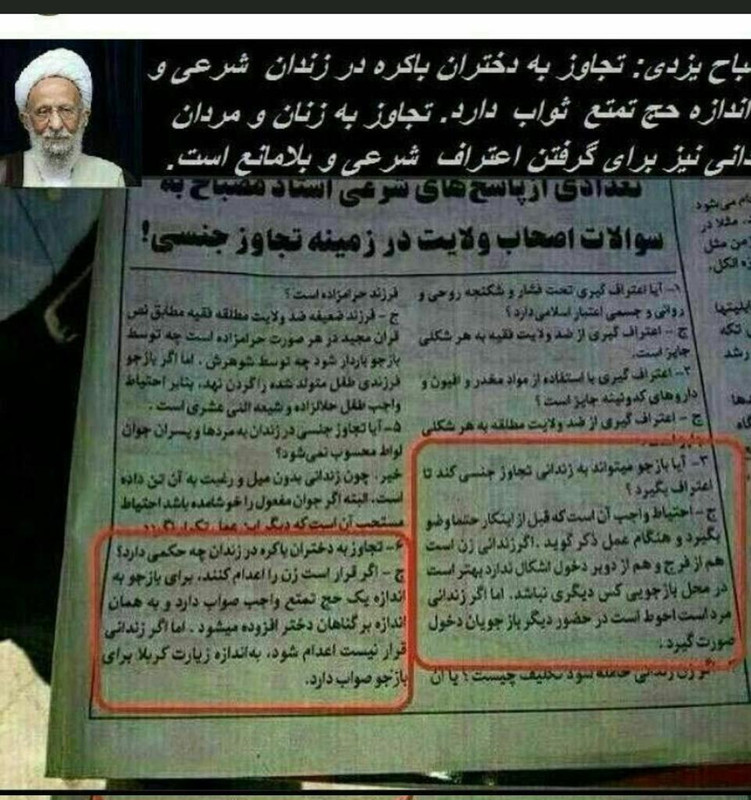 باح یزدی: تجاوز به دختران باکره در زندان شرعی و
اندازه حج تمتع ثواب دارد. تجاوز به زنان و مردان
دانی نیز برای گرفتن اعتراف شرعی و بلامانع است.
تعدادی از پاسخ‌های شرعی استاد مصباح به
سوالات اصحاب ولایت در زمینه تجاوز جنسی!
۱- آیا اعتراف گیری تحت فشار و شکنجه روحی و
روانی و جسمی اعتبار اسلامی دارد؟
ج - اعتراف گیری از ضد ولایت فقیه به هر شکلی
جایز است.
۲- اعتراف گیری با استفاده از مواد مخدر و افیون و
داروهای کدوئینه جایز است؟
ج - اعتراف گیری از ضد ولایت مطلقه به هر شکلی
۳- آیا بازجو میتواند به زندانی تجاوز جنسی کند تا
اعتراف بگیرد؟
ج- احتیاط واجب آن است که قبل از اینکار حتما وضو
بگیرد و هنگام عمل ذکر گوید. اگر زندانی زن است
هم از فرج و هم از دوبر دخول اشکال ندارد بهتر است
در محل بازجویی کس دیگری نباشد. اما اگر زندانی
مرد است احوط است در حضور دیگر بازجویان دخول
صورت گیرد.
اگر زن زندانی حامله شود تکلیف چیست؟ یا آن
فرزند حرامزاده است؟
ج - فرزند ضعیفه ضد ولایت مطلقه فقیه مطابق نص
قران مجید در هر صورت حرامزاده است چه توسط
بازجو باردار شود چه توسط شوهرش. اما اگر بازجو
فرزندی طفل متولد شده را گردن نهد، بنابر احتیاط
واجب طفل حلالزاده و شیعه اثنی عشری است.
۵- آیا تجاوز جنسی در زندان به مردها و پسران جوان
لواط محسوب نمی‌شود؟
خیر. چون زندانی بدون میل و رغبت به آن تن داده
است. البته اگر جوان مفعول را خوشامده باشد احتیاط
مستحب آن است که دیگر این عمل تکرار
۶- تجاوز به دختران باکره در زندان چه حکمی دارد؟
ج - اگر قرار است زن را اعدام کنند، برای بازجو به
اندازه یک حج تمتع واجب صواب دارد و به همان
اندازه بر گناهان دختر افزوده میشود. اما اگر زندانی
قرار نیست اعدام شود، به‌اندازه زیارت کربلا برای
بازجو صواب دارد.
ام می‌شود
مثلا در
من مثل
ه الکل.
لیتها
تکه
رشد